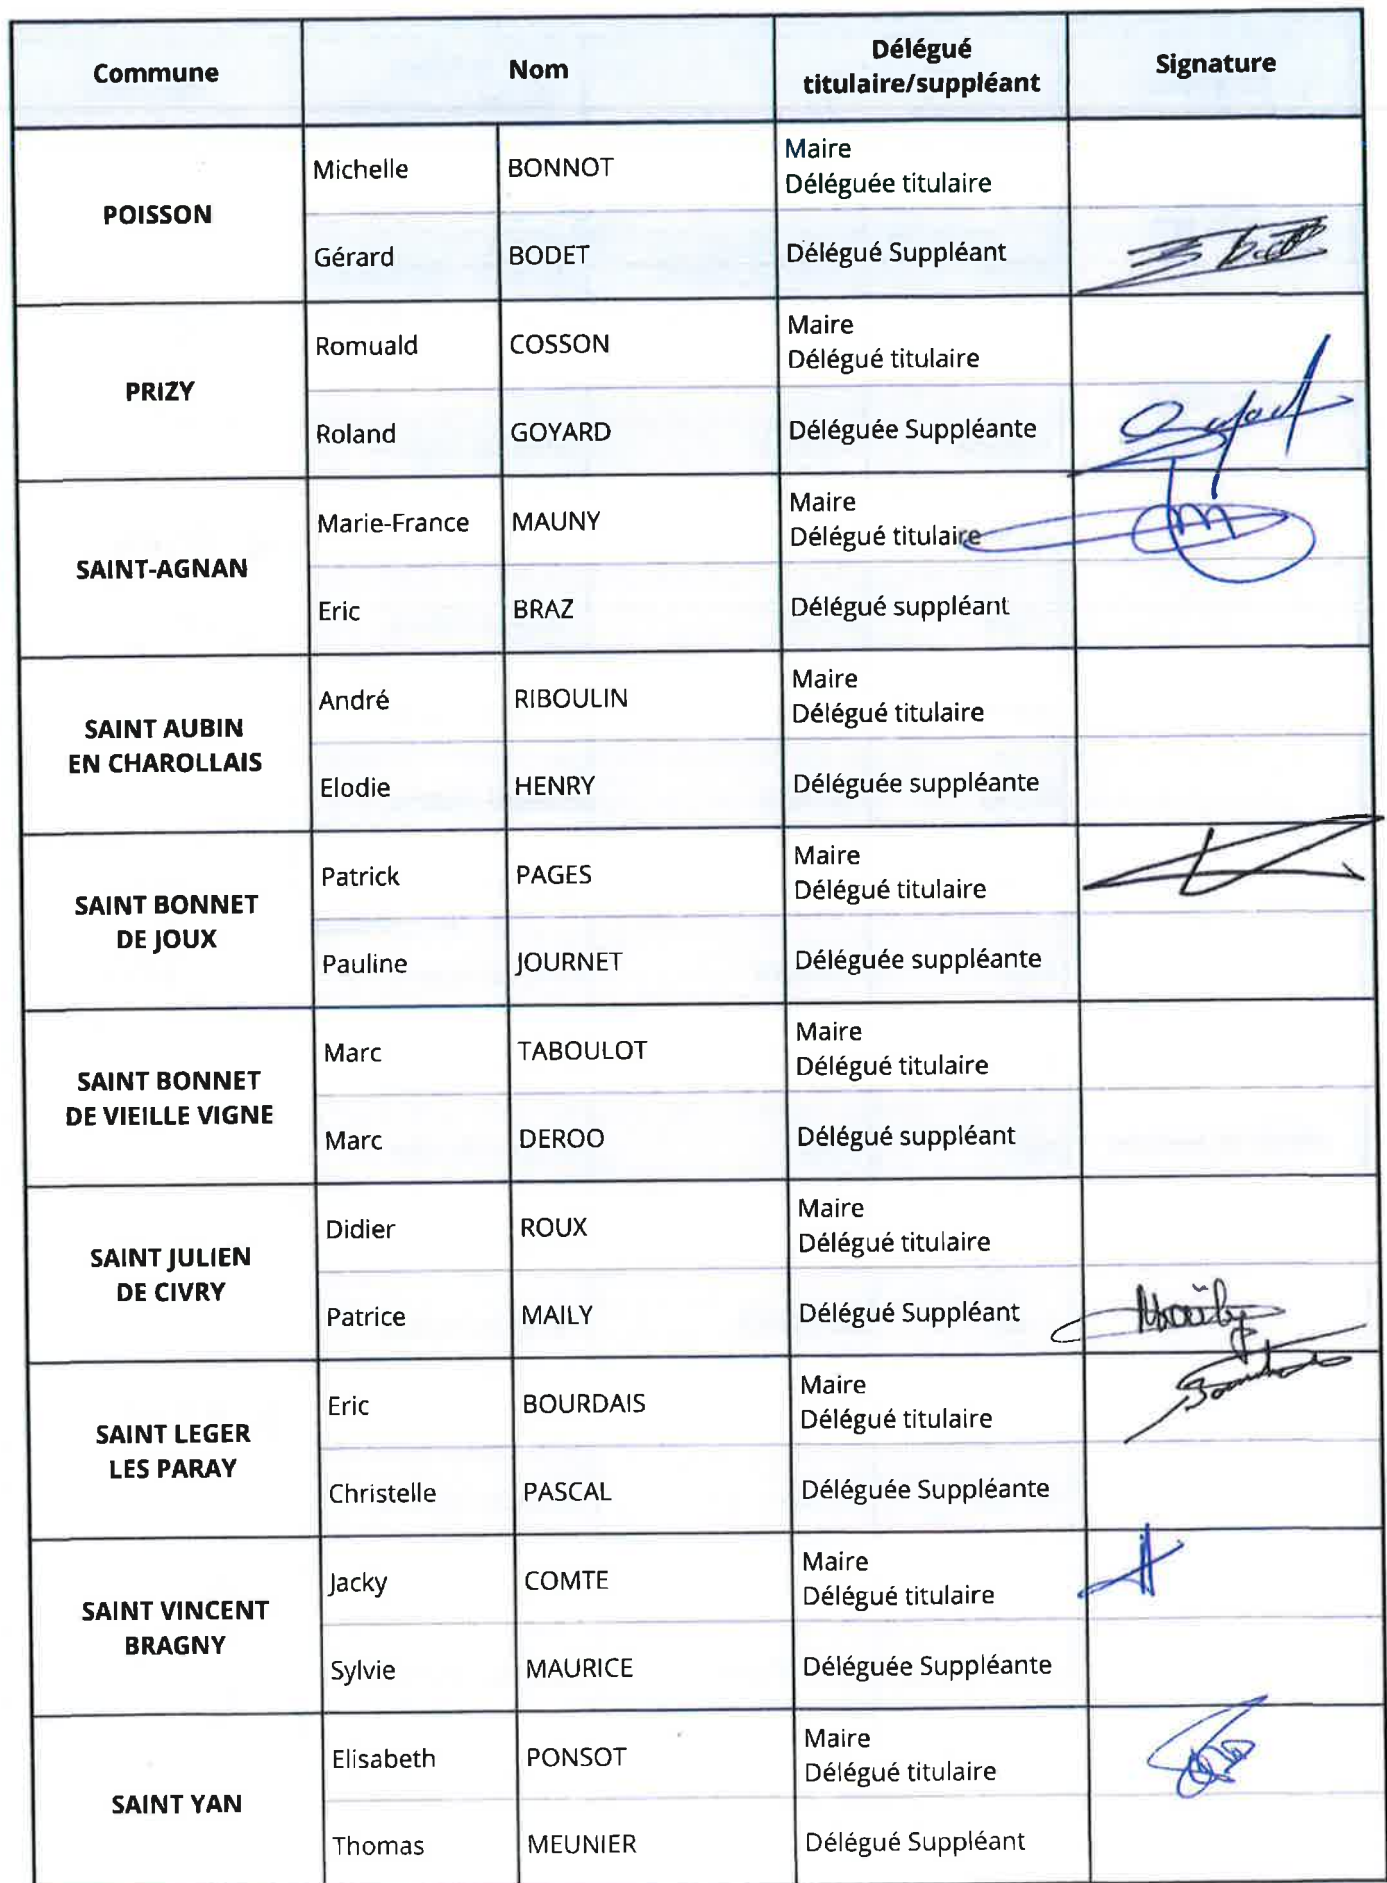 Commune Nom Délégué titulaire/suppléant Signature
POISSON
Michelle BONNOT Maire
Déléguée titulaire
Gérard BODET Délégué Suppléant
PRIZY
Romuald COSSON Maire
Délégué titulaire
Roland GOYARD Déléguée Suppléante
SAINT-AGNAN
Marie-France MAUNY Maire
Délégué titulaire
Eric BRAZ Délégué suppléant
SAINT AUBIN
EN CHAROLLAIS
André RIBOULIN Maire
Délégué titulaire
Elodie HENRY Déléguée suppléante
SAINT BONNET
DE JOUX
Patrick PAGES Maire
Délégué titulaire
Pauline JOURNET Déléguée suppléante
SAINT BONNET
DE VIEILLE VIGNE
Marc TABOULOT Maire
Délégué titulaire
Marc DEROO Délégué suppléant
SAINT JULIEN
DE CIVRY
Didier ROUX Maire
Délégué titulaire
Patrice MAILY Délégué Suppléant
SAINT LEGER
LES PARAY
Eric BOURDAIS Maire
Délégué titulaire
Christelle PASCAL Déléguée Suppléante
SAINT VINCENT
BRAGNY
Jacky COMTE Maire
Délégué titulaire
Sylvie MAURICE Déléguée Suppléante
SAINT YAN
Elisabeth PONSOT Maire
Délégué titulaire
Thomas MEUNIER Délégué Suppléant